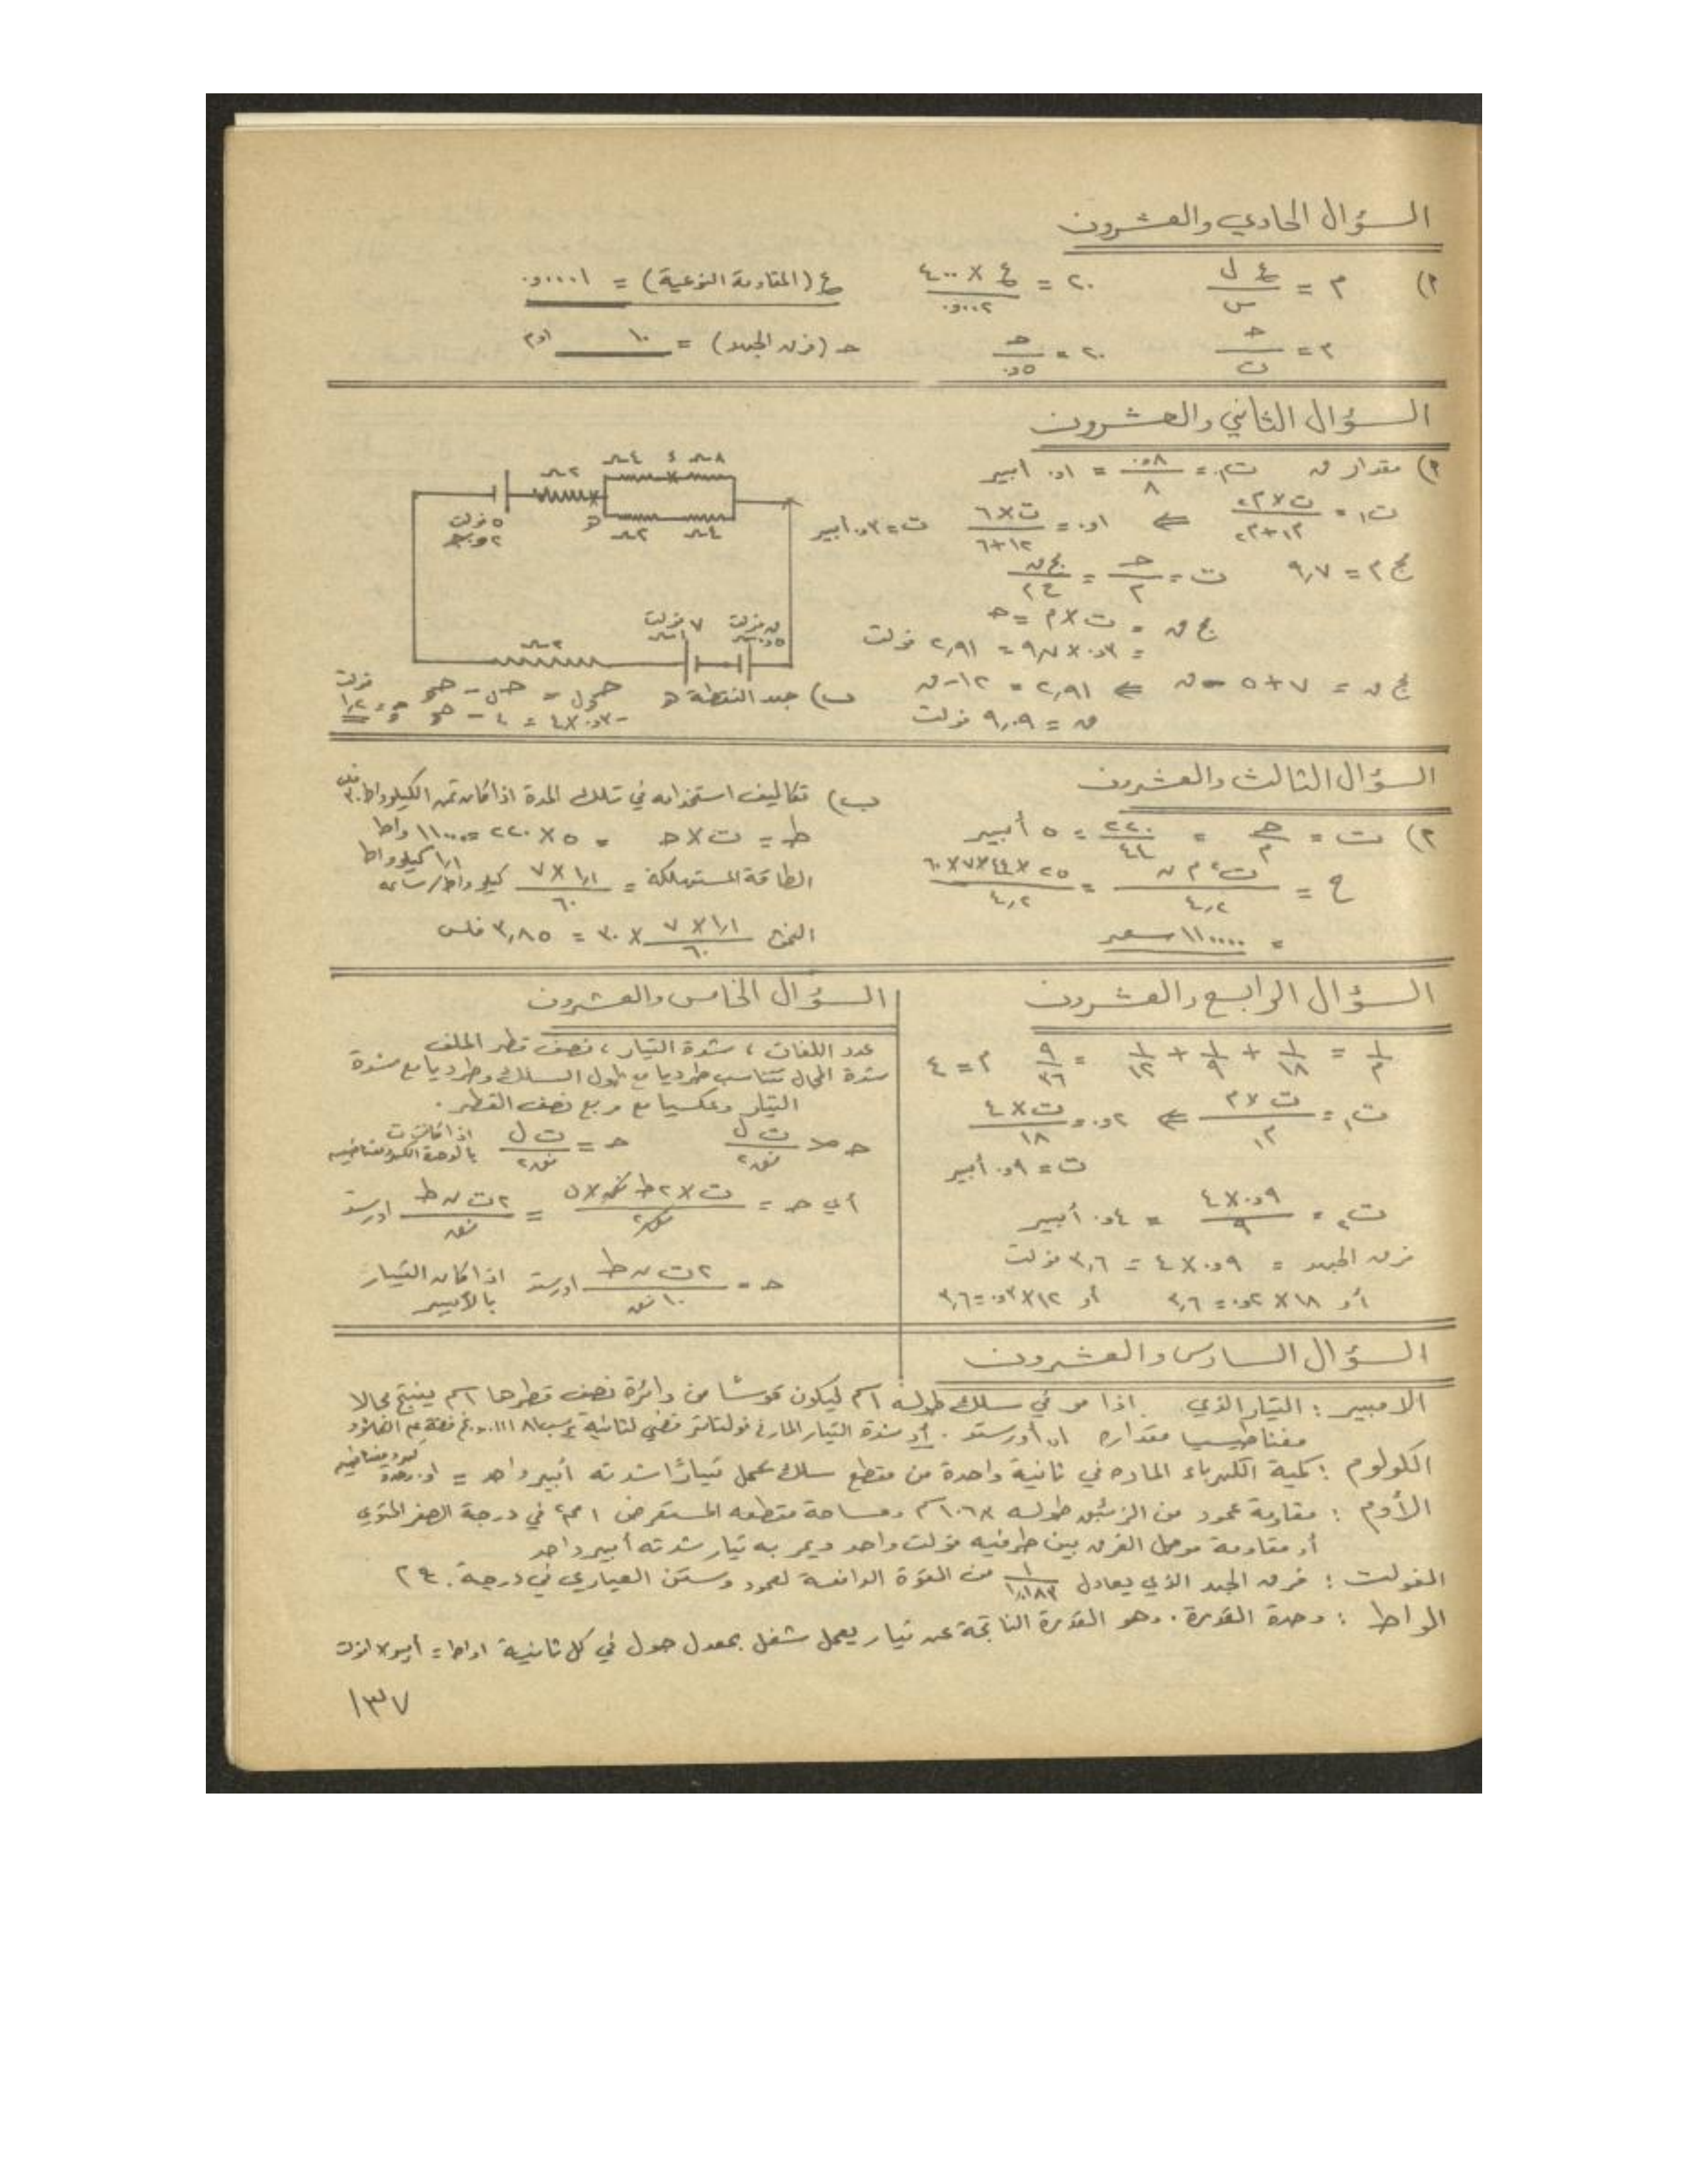 السؤال الحادي والعشرون
٢) م = ع ل / س    ٢٠ = ع × ٤٠٠ / ٠٠٢و.    ع (المقاومة النوعية) = ٠٠٠٠١و.
م = ح / ت    ٢٠ = ح / ٥و.    ح (فرق الجهد) = ١٠
السؤال الثاني والعشرون
٢) مقدار ق    ت١ = ٨و. / ٨ = ١و. أمبير
ت١ = ت × م٢ / م١ + م٢ ⇐ ١و. = ت × ٦ / ١٢+٦    ت = ٣و. أمبير
مج م = ٩٫٧    ت = ح / م = مج ق / مج م
مج ق = ت × م = ح
= ٣و. × ٩٫٧ = ٢٫٩١ فولت
مج ق = ٧ + ٥ - ق ⇐ ٢٫٩١ = ١٢ - ق
ق = ٩٫٠٩ فولت
٤ ٨
٢
٢ ٤
٥ فولت
٧ فولت
ق فولت
٢
ب) جهد النقطة
السؤال الثالث والعشرون
٢) ت = ح / م = ٢٢٠ / ٤٤ = ٥ أمبير
ح = ت٢ م ن / ٤٫٢ = ٢٥ × ٤٤ × ٧ × ٦٠ / ٤٫٢
= ١١٠٠٠٠ سعر
ب) تكاليف استخدامه في تلك المدة اذا كان ثمن الكيلوواط ٣٠ فلس
ط = ت × ح = ٥ × ٢٢٠ = ١١٠٠ واط
١٫١ كيلوواط
الطاقة المستهلكة = ١٫١ × ٧ / ٦٠ كيلوواط/ساعة
الثمن ١٫١ × ٧ / ٦٠ × ٣٠ = ٣٫٨٥ فلس
السؤال الرابع والعشرون
١ / م = ١ / ١٨ + ١ / ٩ + ١ / ١٢ = ٩ / ٣٦    م = ٤
ت١ = ت × م / م١ ⇐ ٢و. = ت × ٤ / ١٨
ت = ٩و. أمبير
ت٢ = ٩و. × ٤ / ٩ = ٤و. أمبير
فرق الجهد = ٩و. × ٤ = ٣٫٦ فولت
أو ١٨ × ٢و. = ٣٫٦    أو ١٢ × ٣و. = ٣٫٦
السؤال الخامس والعشرون
عدد اللفات ، شدة التيار ، نصف قطر الملف
شدة المجال تتناسب طرديا مع طول السلك وطرديا مع شدة
التيار وعكسيا مع مربع نصف القطر .
ح ∝ ت ل / نق٢    ح = ت ل / نق٢    اذا كانت ت بالوحدة الكهرومغناطيسية
أي ح = ت × ٢ ط نق × ن / نق٢ = ٢ ت ن ط / نق اورستد
ح = ٢ ت ن ط / ١٠ نق اورستد اذا كان التيار بالأمبير
السؤال السادس والعشرون
الامبير : التيار الذي اذا مر في سلك طوله ١سم ليكون قوسا من دائرة نصف قطرها ١سم ينتج مجالا
مغناطيسيا مقداره ١و. أورستد . أو شدة التيار المار في فولتامتر فضي لثانية يرسب
الكولوم : كمية الكهرباء الماره في ثانية واحدة من مقطع سلك يحمل تيارًا شدته أمبير واحد = ١و. وحدة كهرومغناطيسية
الأوم : مقاومة عمود من الزئبق طوله ١٠٦٫٣سم ومساحة مقطعه المستعرض ١مم٢ في درجة الصفر المئوي
أو مقاومة موصل الفرق بين طرفيه فولت واحد ويمر به تيار شدته أمبير واحد
الفولت : فرق الجهد الذي يعادل ١ / ١٫٠١٨٣ من القوة الدافعة لعمود وستن العياري في درجة ٢٠م
الواط : وحدة القدرة . وهو القدرة الناتجة عن تيار يعمل شغل بمعدل جول في كل ثانية ١واط = أمبير × فولت
١٣٧